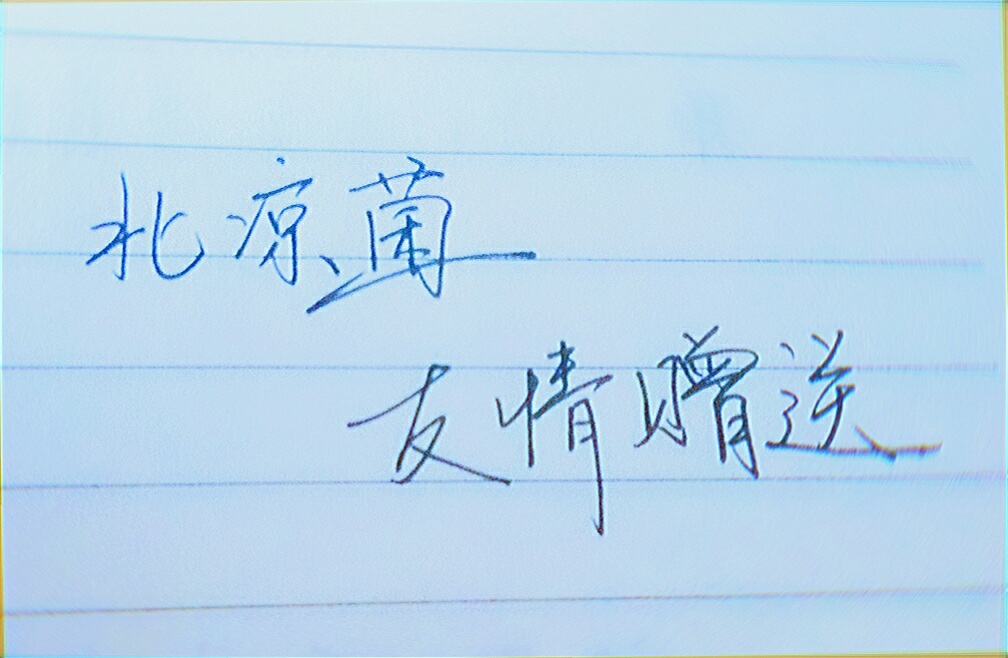 北凉菌
友情赠送